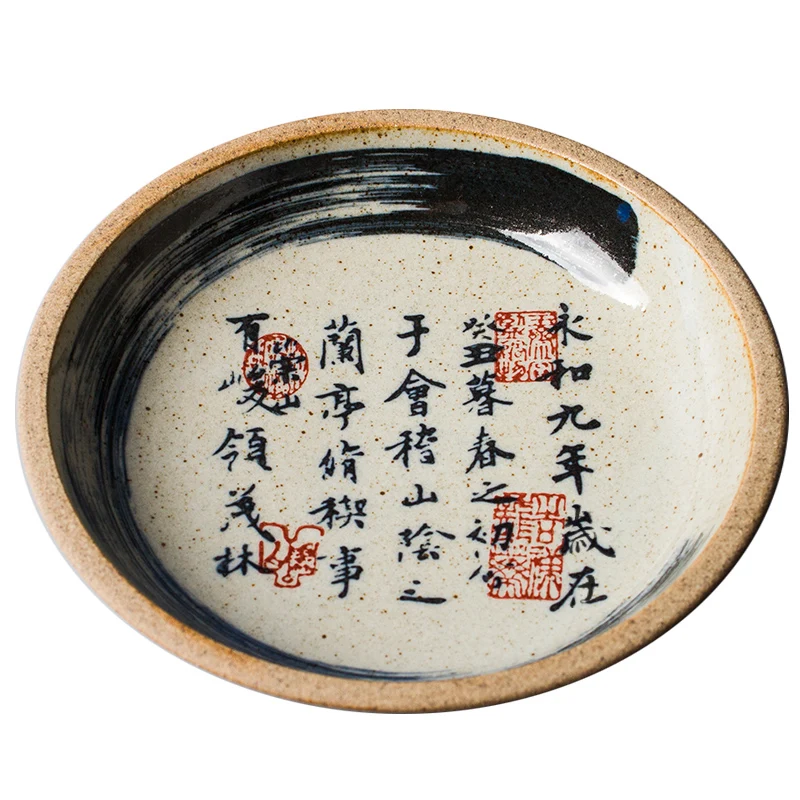 永和九年歲在
癸丑暮春之初會
于會稽山陰之
蘭亭脩稧事
有崇山峻領茂林